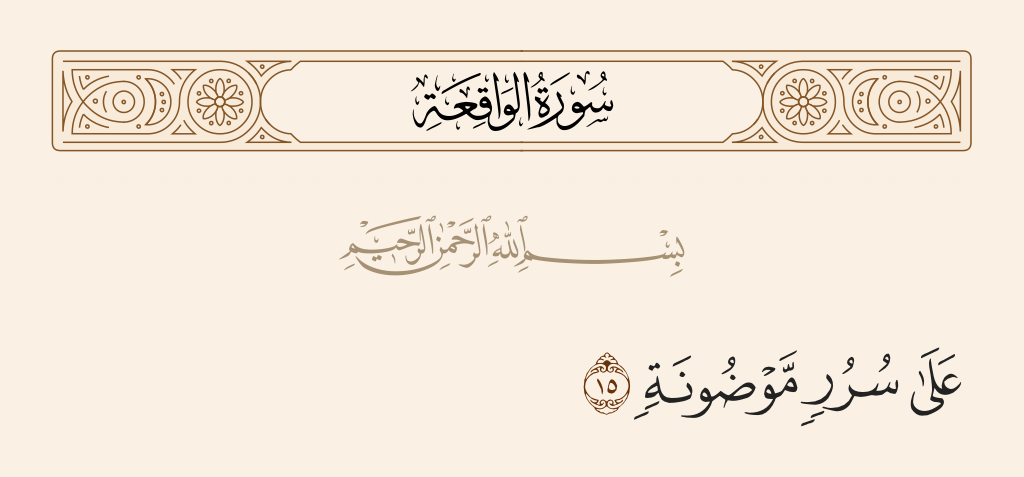 سُورَةُ الوَاقِعَةِ
بِسْمِ ٱللَّهِ ٱلرَّحْمَٰنِ ٱلرَّحِيمِ
عَلَىٰ سُرُرٍ مَّوْضُونَةٍ ١٥